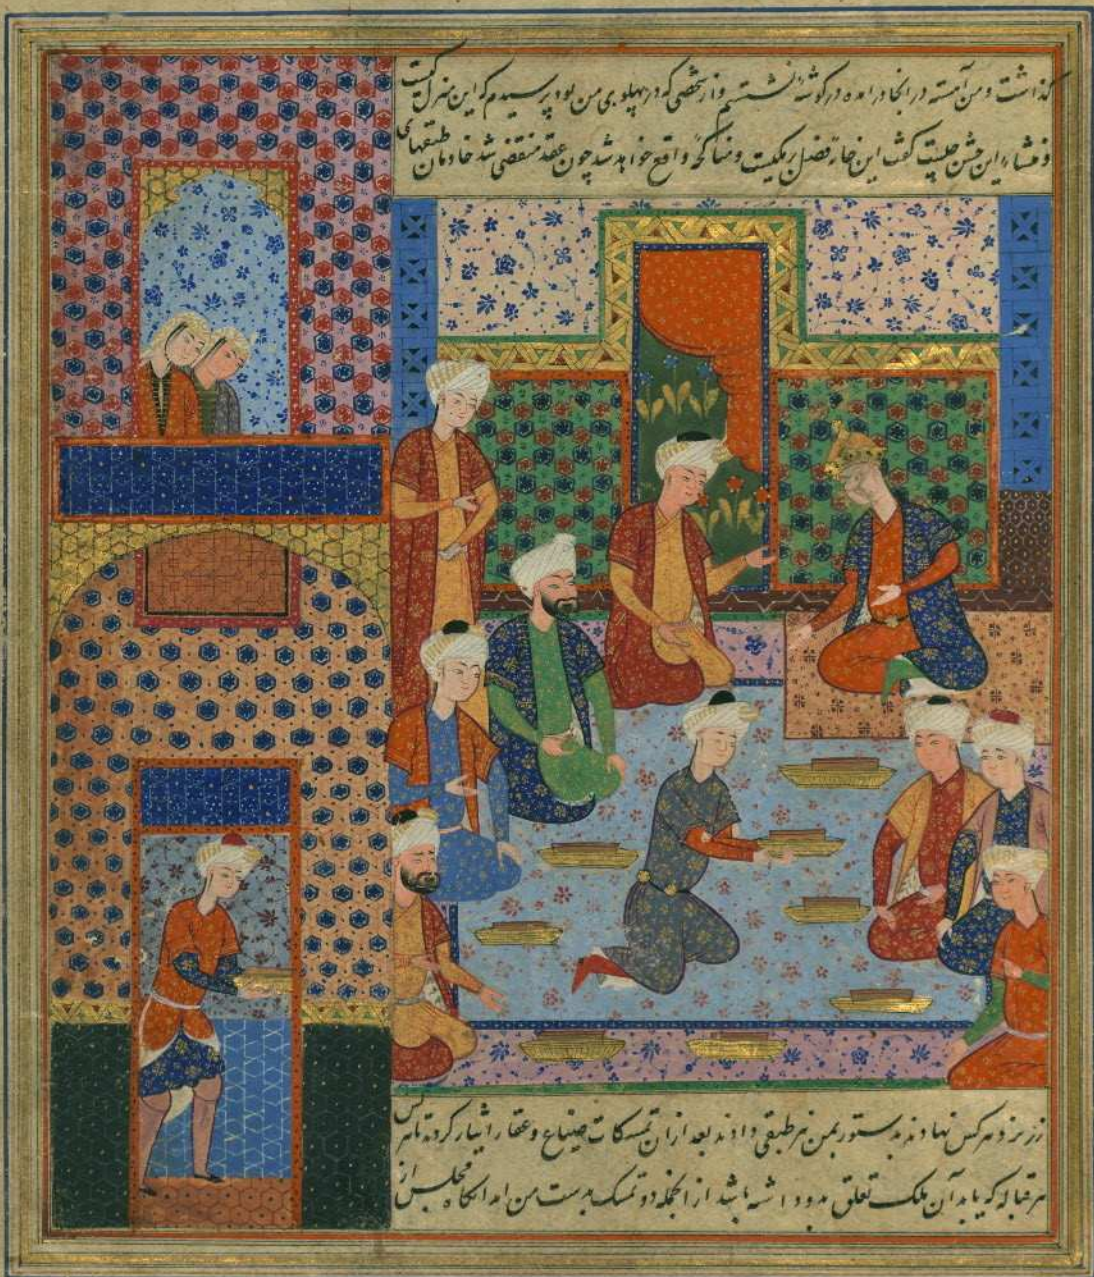 گذاشت و من آهسته در انجا درامده در گوشهٔ نشستم و از شخصی که در پهلوی من بود پرسیدم که این منزل کیست
و منشاء این جشن چیست گفت این خانه فضل برمکیست و مناکحه واقع خواهد شد چون عقد منقضی شد خادمان طبقهای
زر نزد هر کس نهادند بدستور بمن هر طبقی دادند بعد ازان تمسکات ضیاع و عقار ایثار کردند تا هر کس
هر قباله که یابد آن ملک تعلق بدو داشته باشد از انجمله دو تمسک بدست من امد انکاه مجلس از